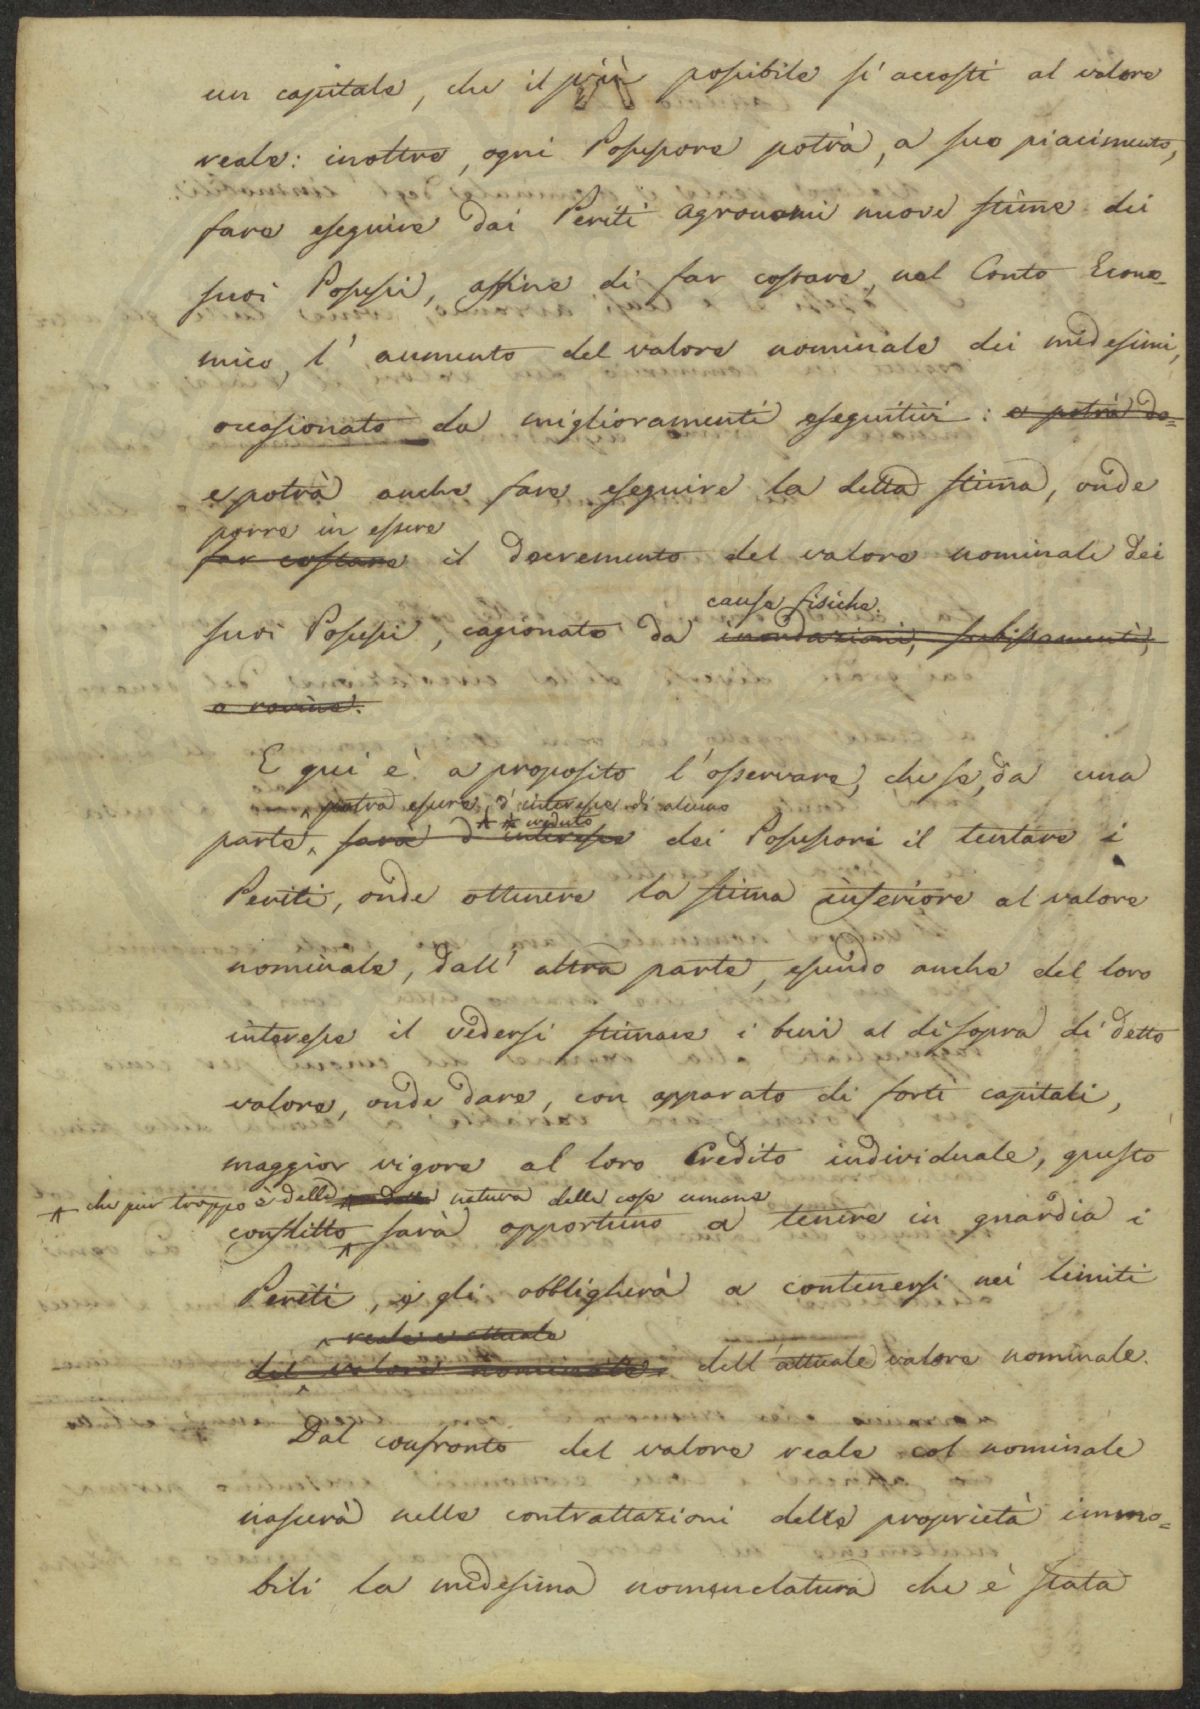 un capitale, che il più possibile s'accosti al valore
reale: inoltre, ogni Possessore potrà, a suo piacimento,
fare eseguire dai Periti agronomi nuove stime dei
suoi Possessi, affine di far costare, nel Conto Econo=
mico, l'aumento del valore nominale dei medesimi,
occasionato da miglioramenti eseguitivi: e potrà do=
e potrà anche fare eseguire la detta stima, onde
porre in essere
far costare il decremento del valore nominale dei
cause fisiche.
suoi Possessi, cagionato da inondazioni, subissamenti,
o rovine.
E qui è a proposito l'osservare, che se, da una
potrà essere, d'interesse di alcuno
veduto
parte, sarà d'interesse dei Possessori il tentare i
Periti, onde ottenere la stima inferiore al valore
nominale, dall'altra parte, essendo anche del loro
interesse il vedersi stimare i beni al disopra di detto
valore, onde dare, con apparato di forti capitali,
maggior vigore al loro Credito individuale, questo
che pur troppo è della natura delle cose umane
conflitto sarà opportuno a tenere in guardia i
Periti, e gli obbligherà a contenersi nei limiti
reale e attuale
del valore nominale. dell'attuale valore nominale.
Dal confronto del valore reale col nominale
nascerà nelle contrattazioni delle proprietà immo=
bili la medesima nomenclatura che è stata